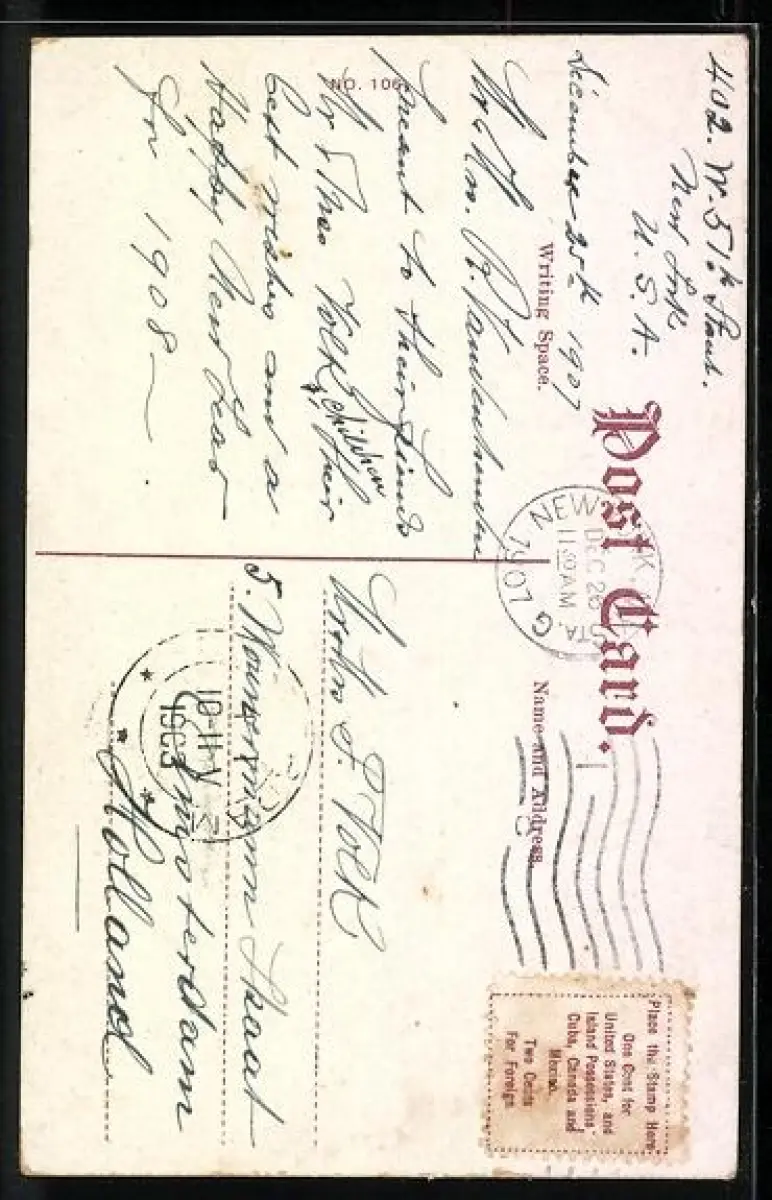 402. W. 51th Street.
New York
U. S. A.
Post Card.
December 25th 1907
Writing Space.
Name and Address.
NO. 106
Wm.
present to their Friends
Mr & Mrs Volk & their
children
best wishes and a
Happy New Year
for 1908 —
NEW YORK,
DEC 26
11 30 AM
STA. G
1907
Place the Stamp Here
One Cent for
United States, and
Island Possessions
Cuba, Canada and
Mexico.
Two Cents
For Foreign
Volk
5. Straat
Amsterdam
Holland